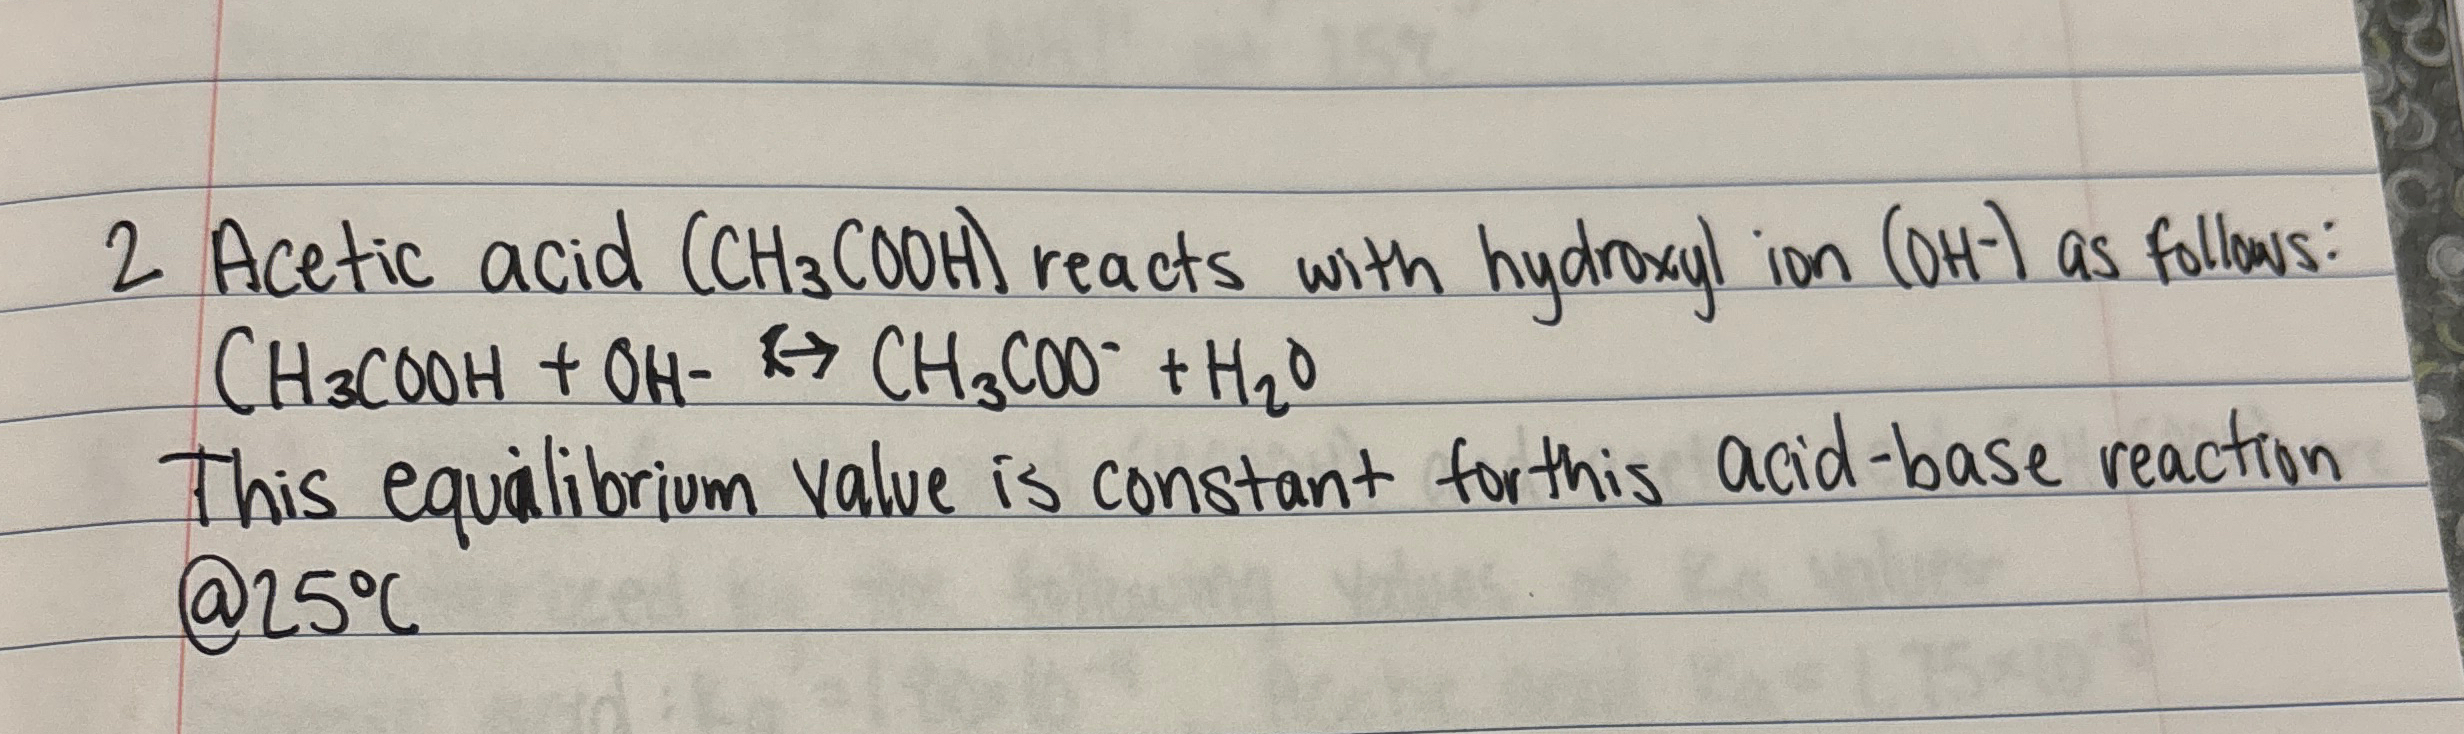 2 Acetic acid (CH₃COOH) reacts with hydroxyl ion (OH-) as follows:
CH₃COOH + OH- ↔ CH₃COO⁻ + H₂O
This equilibrium value is constant for this acid-base reaction
@25°C